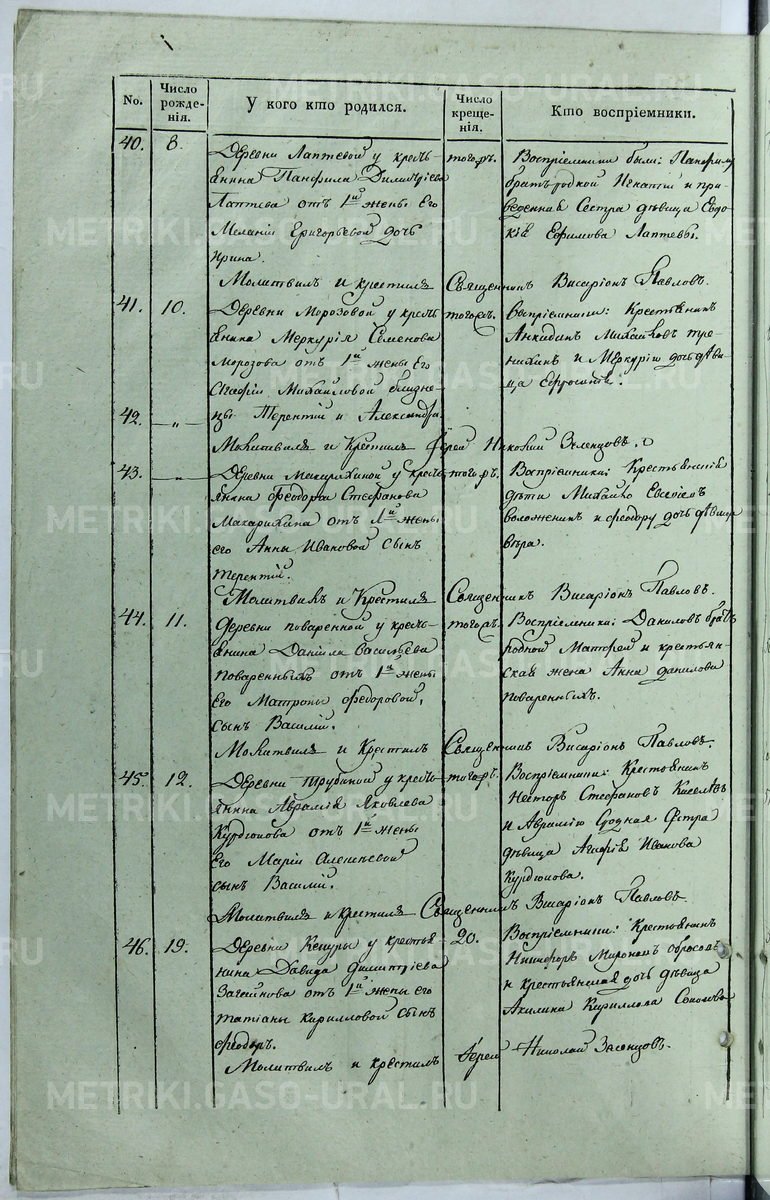 No.
Число рожде-
нія.
У кого кто родился.
Число
креще-
нія.
Кто воспріемники.
40. 8. Деревни Лаптевой у кресть-
янина Панфила Димитріева
Лаптева отъ 1й жены Его
Меланіи Григорьевой дочь
Ирина.
тогожъ.
Воспріемники были: Панфилу
братъ родной Игнатій и при-
веденная Сестра дѣвица Евдо-
кія Ефимова Лаптевы.
Молитвилъ и крестилъ Священникъ Висаріонъ Павловъ.
41. 10. Деревни Морозовой у кресть-
янина Меркурія Семенова
Морозова отъ 1й жены Его
Агафіи Михайловой близне-
42. —„— цы Терентій и Александра.
тогожъ.
Воспріемники: Крестьянинъ
Михайловъ
и Меркурію дочь дѣви-
ца Ефросинія.
Молитвилъ и Крестилъ Іерей Николай
43. —„— Деревни Макарихиной у кресть-
янина Феодора Стефанова
Макарихина отъ 1й жены
его Анны Ивановой сынъ
Терентій.
тогожъ.
Воспріемники: Крестьянскіе
дѣти Михайло Евсеіевъ
и Феодору дочь дѣвица
Вѣра.
Молитвилъ и Крестилъ Священникъ Висаріонъ Павловъ.
44. 11. Деревни Поваренной у кресть-
янина Даніила Васильева
Поваренныхъ отъ 1й жены
Его Матроны Феодоровой,
сынъ Василій.
тогожъ.
Воспріемники: Даниловъ братъ
родной Матфей и крестьян-
ская жена Анна Данилова
Поваренныхъ.
Молитвилъ и Крестилъ Священникъ Висаріонъ Павловъ.
45. 12. Деревни Трубиной у кресть-
янина Аврамія Яковлева
Курдюкова отъ 1й жены
Его Маріи Алексѣевой
сынъ Василій.
тогожъ.
Воспріемники: Крестьянинъ
Несторъ Стефановъ Киселевъ
и Аврамію Сродная Сестра
дѣвица Агафія Иванова
Курдюкова.
Молитвилъ и крестилъ Священникъ Висаріонъ Павловъ.
46. 19. Деревни у крестья
нина Давида Димитріева
отъ 1й жены его
Татіаны Кирилловой сынъ
Феодоръ.
20.
Воспріемники: Крестьянинъ
Никифоръ Мироновъ
и крестьянская дочь дѣвица
Акилина Кириллова
Молитвилъ и крестилъ Іерей Николай
METRIKI.GASO-URAL.RU